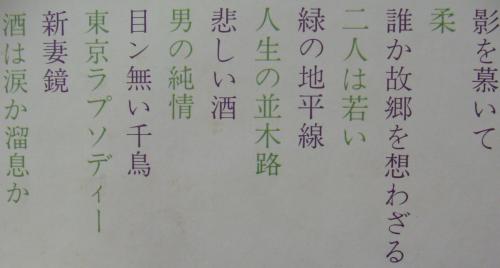 影を慕いて
柔
誰か故郷を想わざる
二人は若い
緑の地平線
人生の並木路
悲しい酒
男の純情
目ン無い千鳥
東京ラプソディー
新妻鏡
酒は涙か溜息か